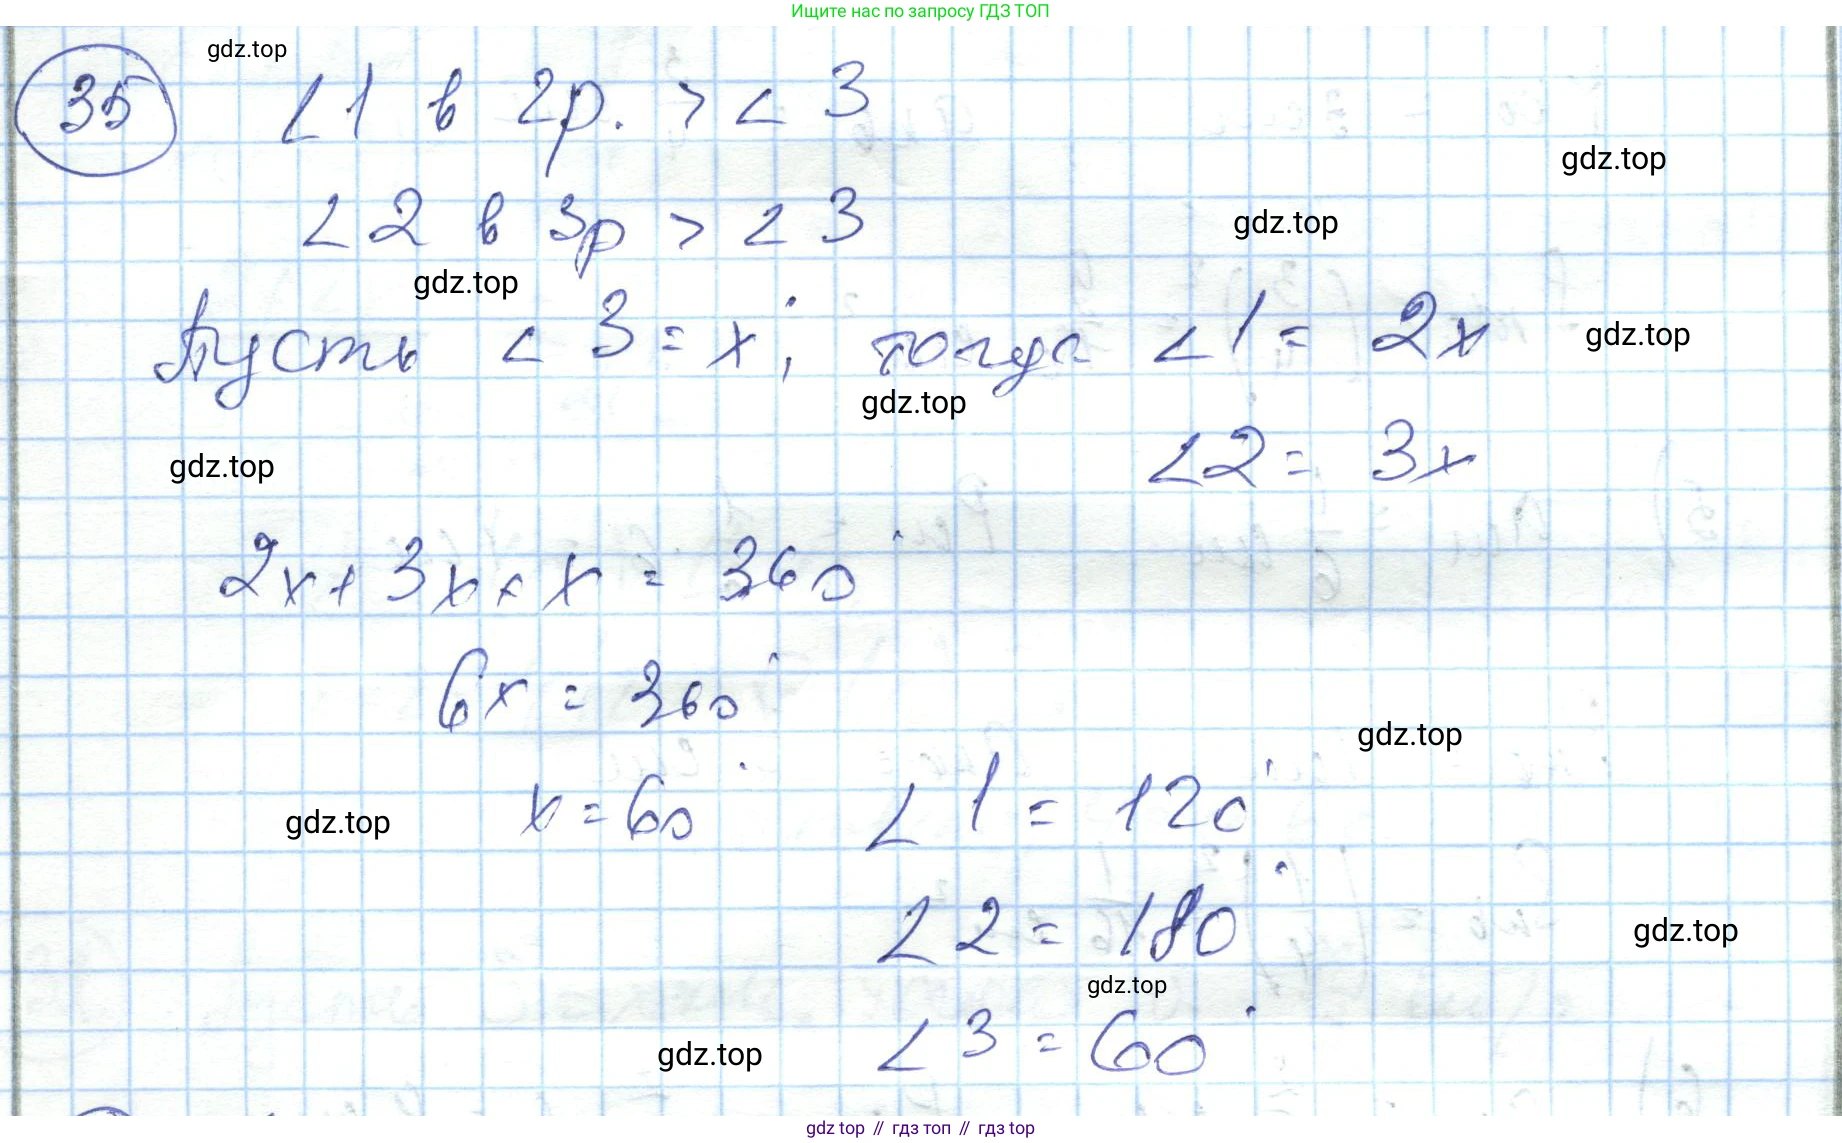 Ищите нас по запросу ГДЗ ТОП
gdz.top
35 ∠1 в 2р. > ∠3
gdz.top
∠2 в 3р > ∠3
gdz.top
gdz.top
Пусть ∠3 = x°, тогда ∠1 = 2x
gdz.top
gdz.top
∠2 = 3x
gdz.top
2x + 3x + x = 360°
6x = 360°
gdz.top
x = 60° ∠1 = 120°
gdz.top
∠2 = 180°
gdz.top
gdz.top
∠3 = 60°
gdz.top
gdz top // гдз топ // gdz top